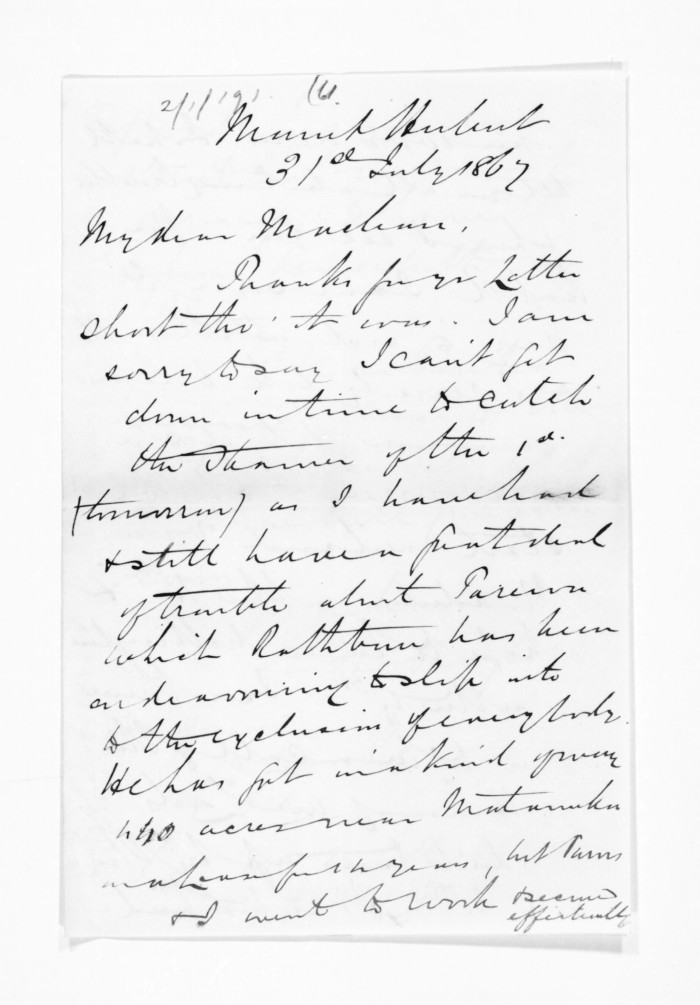 Mount Herbert
31st July 1867
My dear Maclean,
Thanks for yr Letter
short tho' it was. I am
sorry to say I can't get
down in time to catch
the Steamer of the 1st.
(tomorrow) as I have had
& still have a great deal
of trouble about Tarewa
which Rathbun has been
endeavouring to slip into
to the exclusion of everybody.
He has got in a kind of way
440 acres near
on a Lease for 10 years, but
& I went to work & secure
effectually